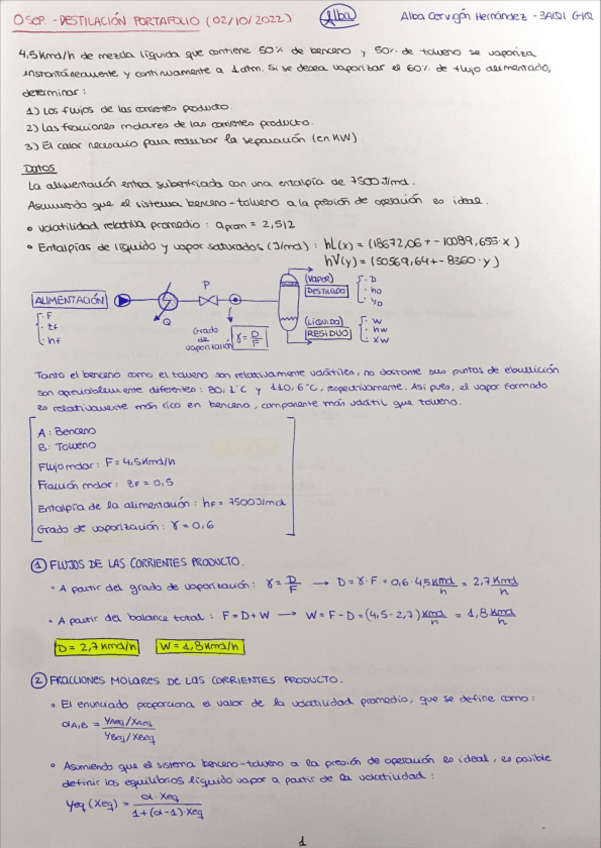 OSOP.- DESTILACIÓN PORTAFOLIO (02/10/2022)
Alba
Alba Cervigón Hernández - 3AIQ1 GIQ
4,5 Kmol/h de mezcla líquida que contiene 50% de benceno y 50% de tolueno se vaporiza
instantáneamente y continuamente a 1 atm. Si se desea vaporizar el 60% de flujo alimentado,
determinar:
1) Los flujos de las corrientes producto.
2) Las fracciones molares de las corrientes producto.
3) El calor necesario para realizar la separación (en KW)
Datos
La alimentación entra subenfriada con una entalpía de 7500 J/mol.
Asumiendo que el sistema benceno-tolueno a la presión de operación es ideal.
• Volatilidad relativa promedio: αprom = 2,512
• Entalpías de líquido y vapor saturados (J/mol): hL(x) = (18672,06 + -10089,655·x)
hV(y) = (50569,64 + -8360·y)
ALIMENTACIÓN
· F
· zF
· hF
Q
P
Grado
de
vaporización
γ = D/F
(VAPOR)
DESTILADO
· D
· hD
· yD
(LÍQUIDO)
RESIDUO
· W
· hW
· xW
Tanto el benceno como el tolueno son relativamente volátiles, no obstante sus puntos de ebullición
son apreciablemente diferentes: 80,1°C y 110,6°C, respectivamente. Así pues, el vapor formado
es relativamente más rico en benceno, componente más volátil que tolueno.
A: Benceno
B: Tolueno
Flujo molar: F = 4,5 Kmol/h
Fracción molar: zF = 0,5
Entalpía de la alimentación: hF = 7500 J/mol
Grado de vaporización: γ = 0,6
1 FLUJOS DE LAS CORRIENTES PRODUCTO.
• A partir del grado de vaporización: γ = D/F → D = γ·F = 0,6·4,5 Kmol/h = 2,7 Kmol/h
• A partir del balance total: F = D + W → W = F - D = (4,5 - 2,7) Kmol/h = 1,8 Kmol/h
D = 2,7 Kmol/h W = 1,8 Kmol/h
2 FRACCIONES MOLARES DE LAS CORRIENTES PRODUCTO.
• El enunciado proporciona el valor de la volatilidad promedio, que se define como:
αA,B = yAeq/xAeq / yBeq/xBeq
• Asumiendo que el sistema benceno-tolueno a la presión de operación es ideal, es posible
definir los equilibrios líquido vapor a partir de la volatilidad:
Yeq (Xeq) = α·Xeq / 1+(α-1)·Xeq
1